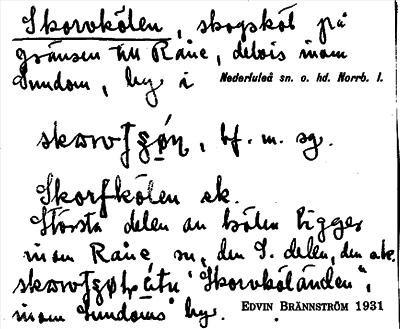 Skorvkölen, skogsköl på
gränsen till Råne, delvis inom
Sundom, by i Nederluleå sn. o. hd. Norrb. l.
bf. m. sg.
Skorfkölen ek.
Största delen av kölen ligger
inom Råne sn, den S. delen, den ek.
"Skorvköländen",
inom Sundoms by. EDVIN BRÄNNSTRÖM 1931